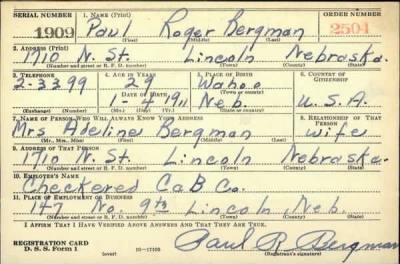 SERIAL NUMBER 1. NAME (Print) ORDER NUMBER
1909 Paul Roger Bergman 2504
(First) (Middle) (Last)
2. ADDRESS (Print)
1710 N. St. Lincoln Nebraska.
(Number and street or R. F. D. number) (Town) (County) (State)
3. TELEPHONE 4. AGE IN YEARS 5. PLACE OF BIRTH 6. COUNTRY OF CITIZENSHIP
2-3399 29 Wahoo
DATE OF BIRTH (Town or county)
1-4 1911 Neb. U.S.A.
(Exchange) (Number) (Mo.) (Day) (Yr.) (State or country)
7. NAME OF PERSON WHO WILL ALWAYS KNOW YOUR ADDRESS 8. RELATIONSHIP OF THAT PERSON
Mrs Adeline Bergman wife
(Mr., Mrs., Miss) (First) (Middle) (Last)
9. ADDRESS OF THAT PERSON
1710 N. St. Lincoln Nebraska.
(Number and street or R. F. D. number) (Town) (County) (State)
10. EMPLOYER'S NAME
Checkered Cab Co.
11. PLACE OF EMPLOYMENT OR BUSINESS
147 No. 9th Lincoln, Neb.
(Number and street or R. F. D. number) (Town) (County) (State)
I AFFIRM THAT I HAVE VERIFIED ABOVE ANSWERS AND THAT THEY ARE TRUE.
REGISTRATION CARD
D. S. S. Form 1 (over) 16-17105 Paul R Bergman
(Registrant's signature)